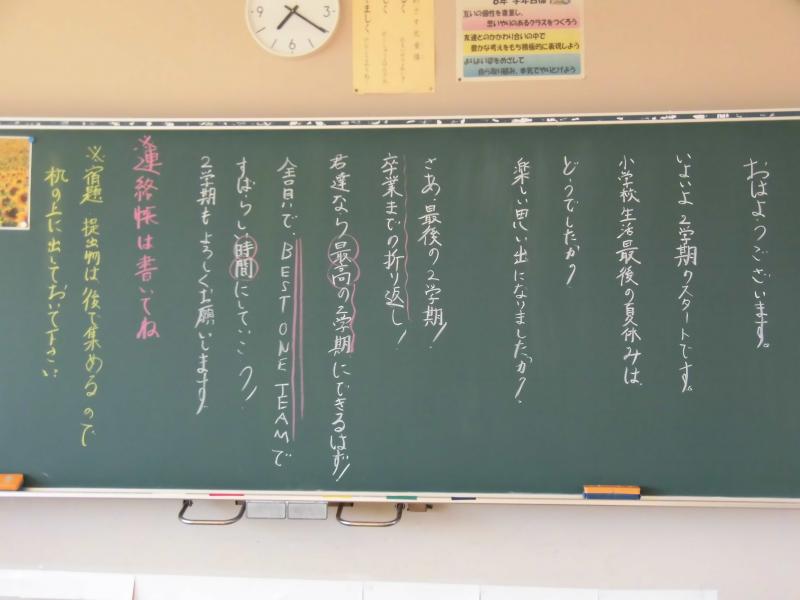 おはようございます。
いよいよ2学期のスタートです。
小学校生活最後の夏休みは
どうでしたか?
楽しい思い出になりましたか?
さあ、最後の2学期!
卒業までの折り返し!
君達なら最高の2学期にできるはず!
全員で、BEST ONE TEAMで
すばらしい時間にしていこう!
2学期もよろしくお願いします。
※連絡帳は書いてね
※宿題 提出物は後で集めるので
机の上に出しておいて下さい
互いの個性を尊重し、
思いやりのあるクラスをつくろう
友達とのかかわり合いの中で
豊かな考えをもち積極的に表現しよう
よりよい姿をめざして
自ら取り組み、本気でやりとげよう
3
4
5
6
7
8
9